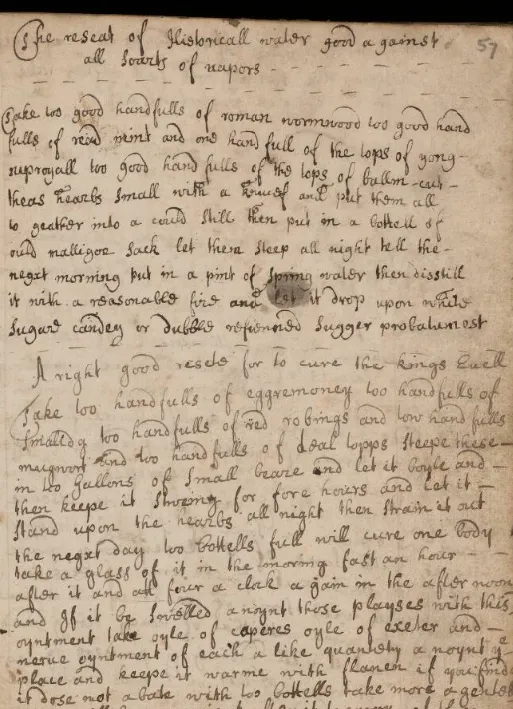 The reseat of Historicall water good a gainst 57
all soarts of vapors
Take too good handfulls of roman wormwood too good hand
fulls of read mint and one hand full of the tops of yong
nuproyall too good hand fulls of the tops of ballm cut
theas hearbs small with a knief and put them all
to geather into a could still then put in a bottell of
ould malligoe sack let them steep all night tell the
negxt morning put in a pint of spring water then disstill
it with a reasonable fire and let it drop upon white
sugare candey or dubble refienned sugger probatumest
A right good resete for to cure the kings Evell
Take too handfulls of eggremoney too handfulls of
smalldg too handfulls of red robings and tow handfulls
mugwort and too handfulls of deal topps steepe these
in too gallons of small beare and let it boyle and
then keepe it stweing for fore hours and let it
stand upon the hearbs all night then strain it out
the negxt day too bottells full will cure one body
take a glass of it in the morning fast an hour
after it and att four a clok a gain in the after noon
and If it be swelled anoynt those playses with this
oyntment take oyle of caperes oyle of exeter and
nerve oyntment of each a like quantety a noynt ye
place and keepe it warme with flanen if you find
it dose not abate with too bottells take more a gentell